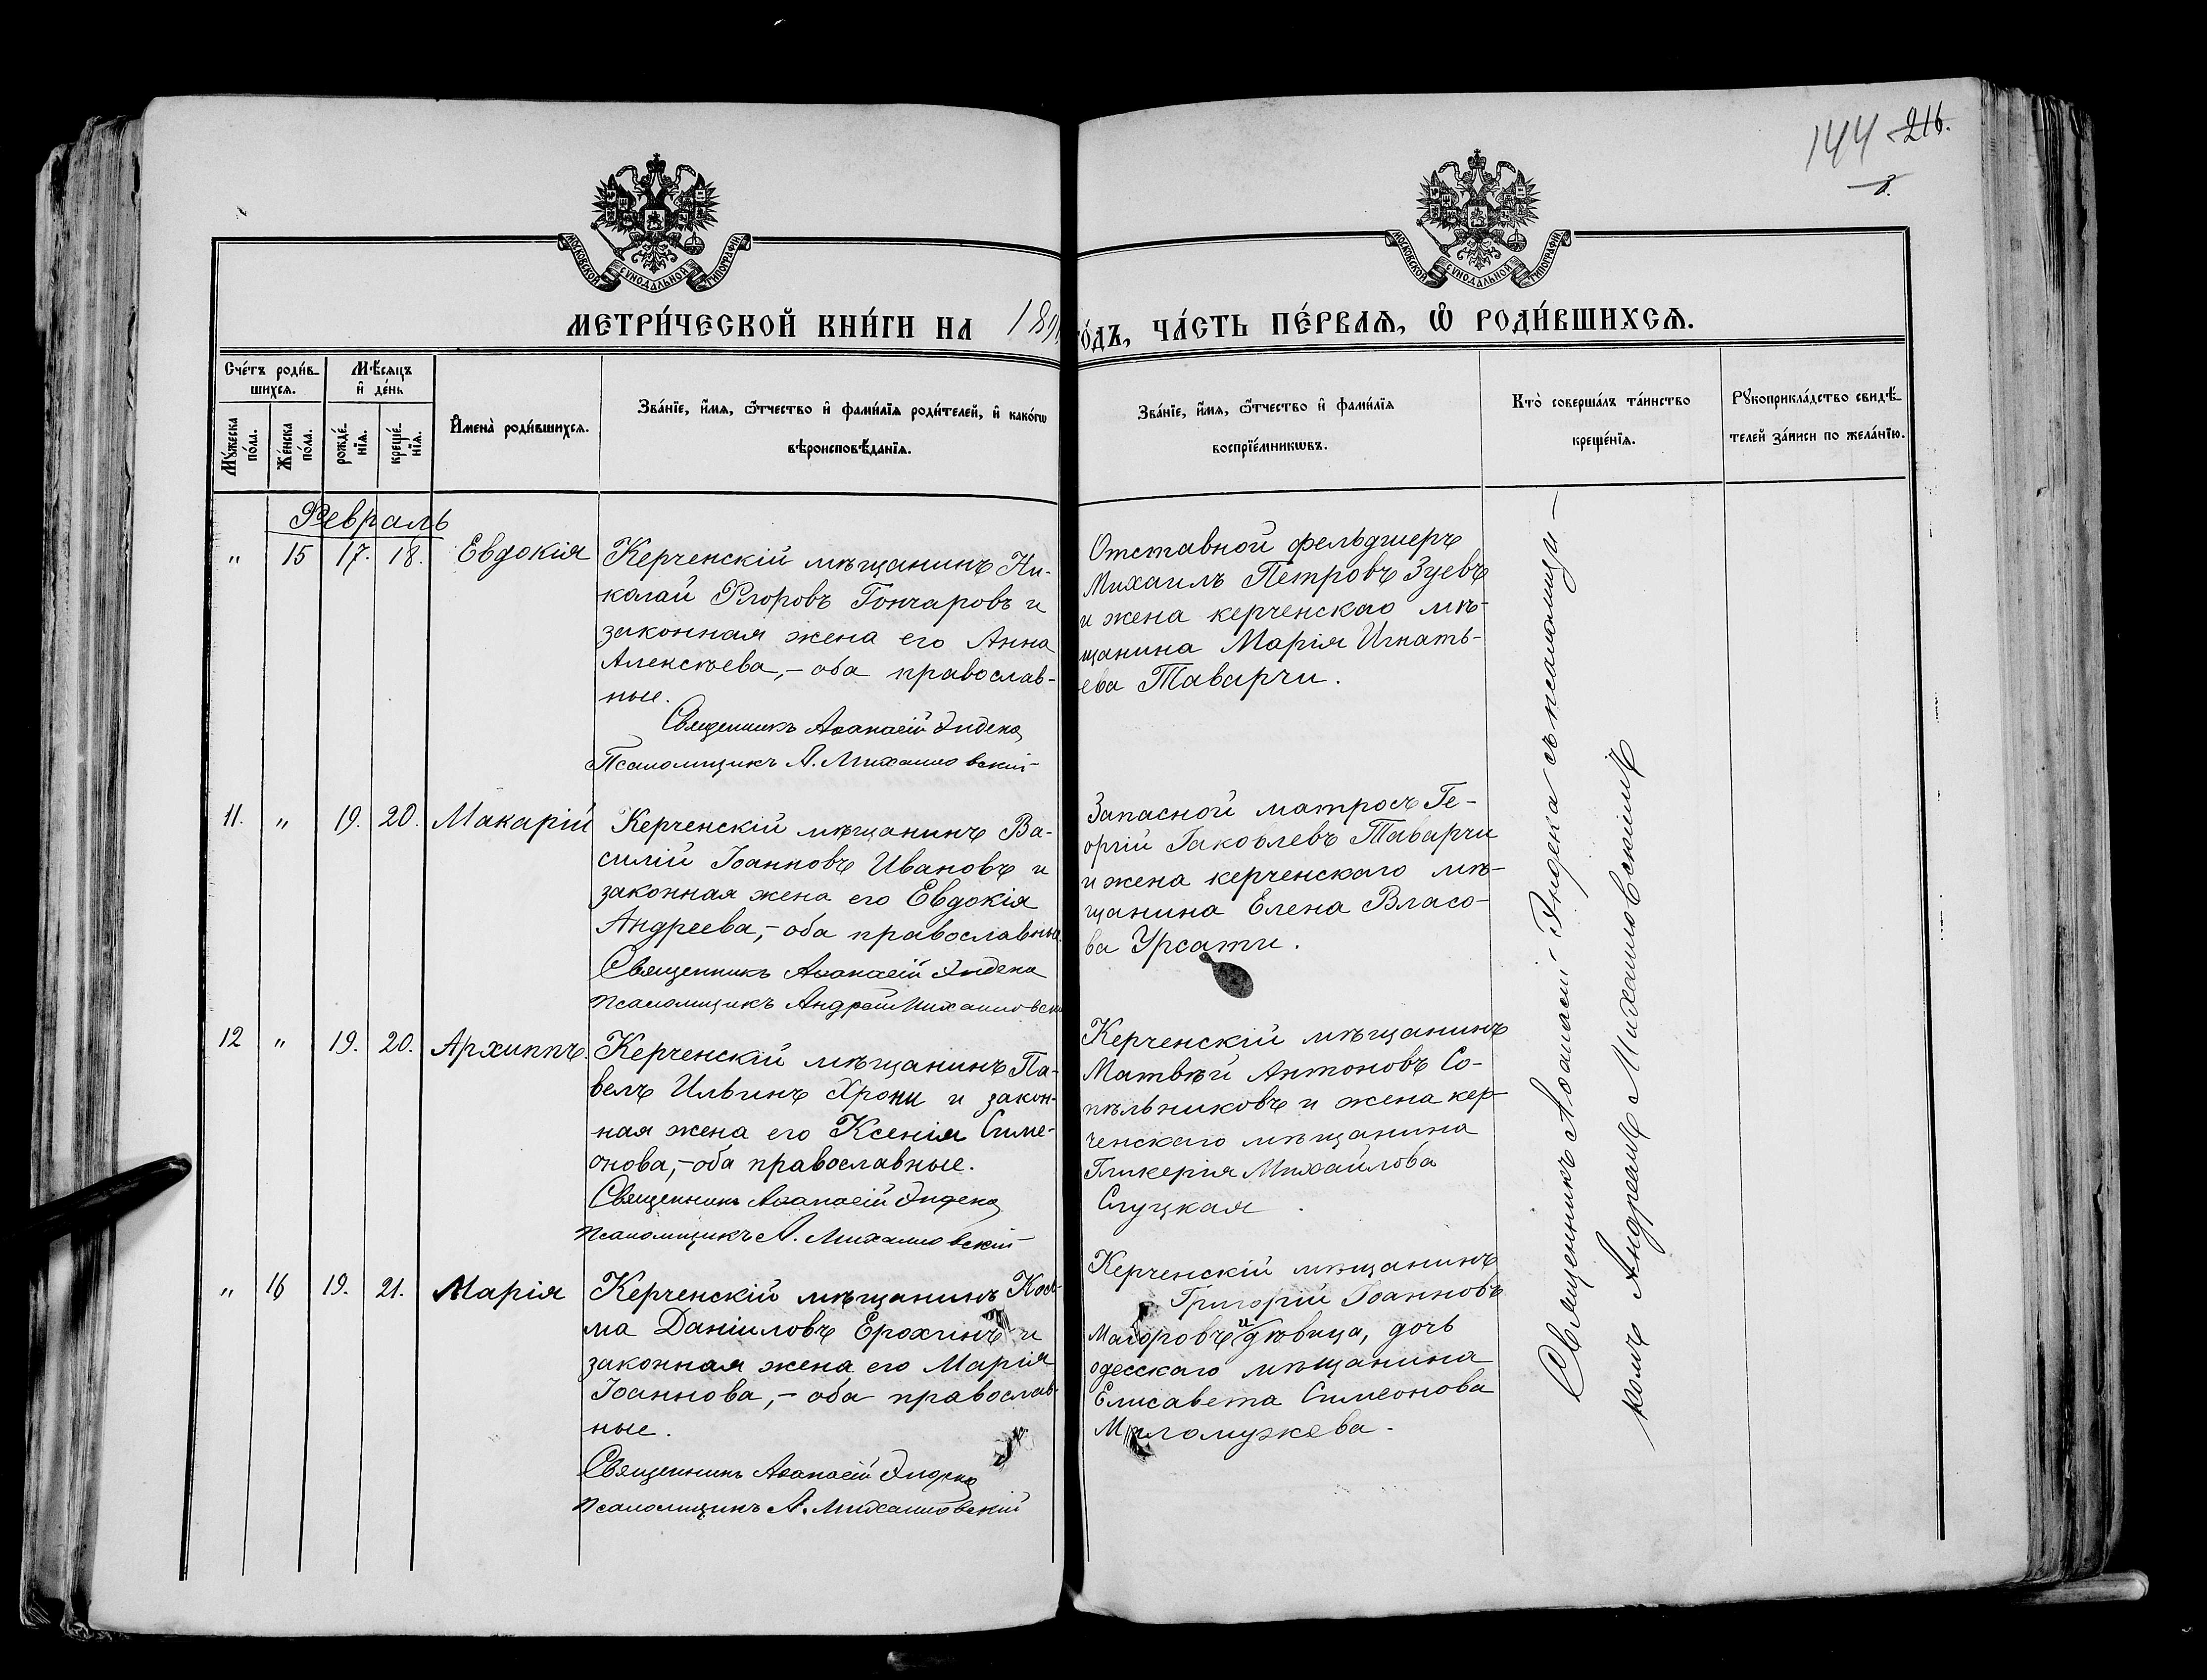 144 216.
МОСКОВСКОЙ СУНОДАЛЬНОЙ ТИПОГРАФІИ
МОСКОВСКОЙ СУНОДАЛЬНОЙ ТИПОГРАФІИ
МЕТРИ́ЧЕСКОЙ КНИ́ГИ НА 189
ГО́ДЪ, ЧА́СТЬ ПЕ́РВАѦ, Ѽ РОДИ́ВШИХСѦ.
Сче́тъ роди́в-
шихсѧ.
Мѣ́сѧцъ
и҆ де́нь
Мꙋ́жеска
по́ла.
Же́нска
по́ла.
рожде́-
нїѧ.
креще́-
нїѧ.
И҆мена̀ роди́вшихсѧ.
Зва́нїе, и҆́мѧ, ѻ҆́тчество и҆ фами́лїѧ роди́телей, и҆ како́гѡ
вѣроисповѣ́данїѧ.
Зва́нїе, и҆́мѧ, ѻ҆́тчество и҆ фами́лїѧ
воспрїе́мникѡвъ.
Кто̀ соверша́лъ та́инство
креще́нїѧ.
Рꙋкоприкла́дство свидѣ́-
телей за́писи по жела́нїю.
Февраль
" 15 17. 18. Евдокія
Керченскій мѣщанинъ Ни-
колай Егоровъ Гончаровъ и
законная жена его Анна
Алексѣева,- оба православ-
ные.
Священникъ Аѳанасій Индека
Псаломщикъ А. Михайловскій
Отставной фельдшеръ
Михаилъ Петровъ Зуевъ
и жена керченскаго мѣ-
щанина Марія Игнать-
ева Таварчи.
11. " 19. 20. Макарій
Керченскій мѣщанинъ Ва-
силій Іоанновъ Ивановъ и
законная жена его Евдокія
Андреева,- оба православные.
Священникъ Аѳанасій Индека
Псаломщикъ Андрей Михайловскій
Запасной матросъ Ге-
оргій Іаковлевъ Таварчи
и жена керченскаго мѣ-
щанина Елена Власо-
ва Урсати.
12 " 19. 20. Архиппъ.
Керченскій мѣщанинъ Па-
велъ Ильинъ Хрони и закон-
ная жена его Ксенія Симе-
онова,- оба православные.
Священникъ Аѳанасій Индека
Псаломщикъ А. Михайловскій
Керченскій мѣщанинъ
Матвѣй Антоновъ Со-
пѣльниковъ и жена кер-
ченскаго мѣщанина
Гликерія Михайлова
Слуцкая.
" 16 19. 21. Марія
Керченскій мѣщанинъ Кось-
ма Даніиловъ Ерохинъ и
законная жена его Марія
Іоаннова,- оба православ-
ные.
Священникъ Аѳанасій Индека
Псаломщикъ А. Михайловскій
Керченскій мѣщанинъ
Григорій Іоанновъ
Маіоровъ и дѣвица, дочь
одесскаго мѣщанина
Елисавета Симеонова
Священникъ Аѳанасій Индека съ псаломщи-
комъ Андреемъ Михайловскимъ